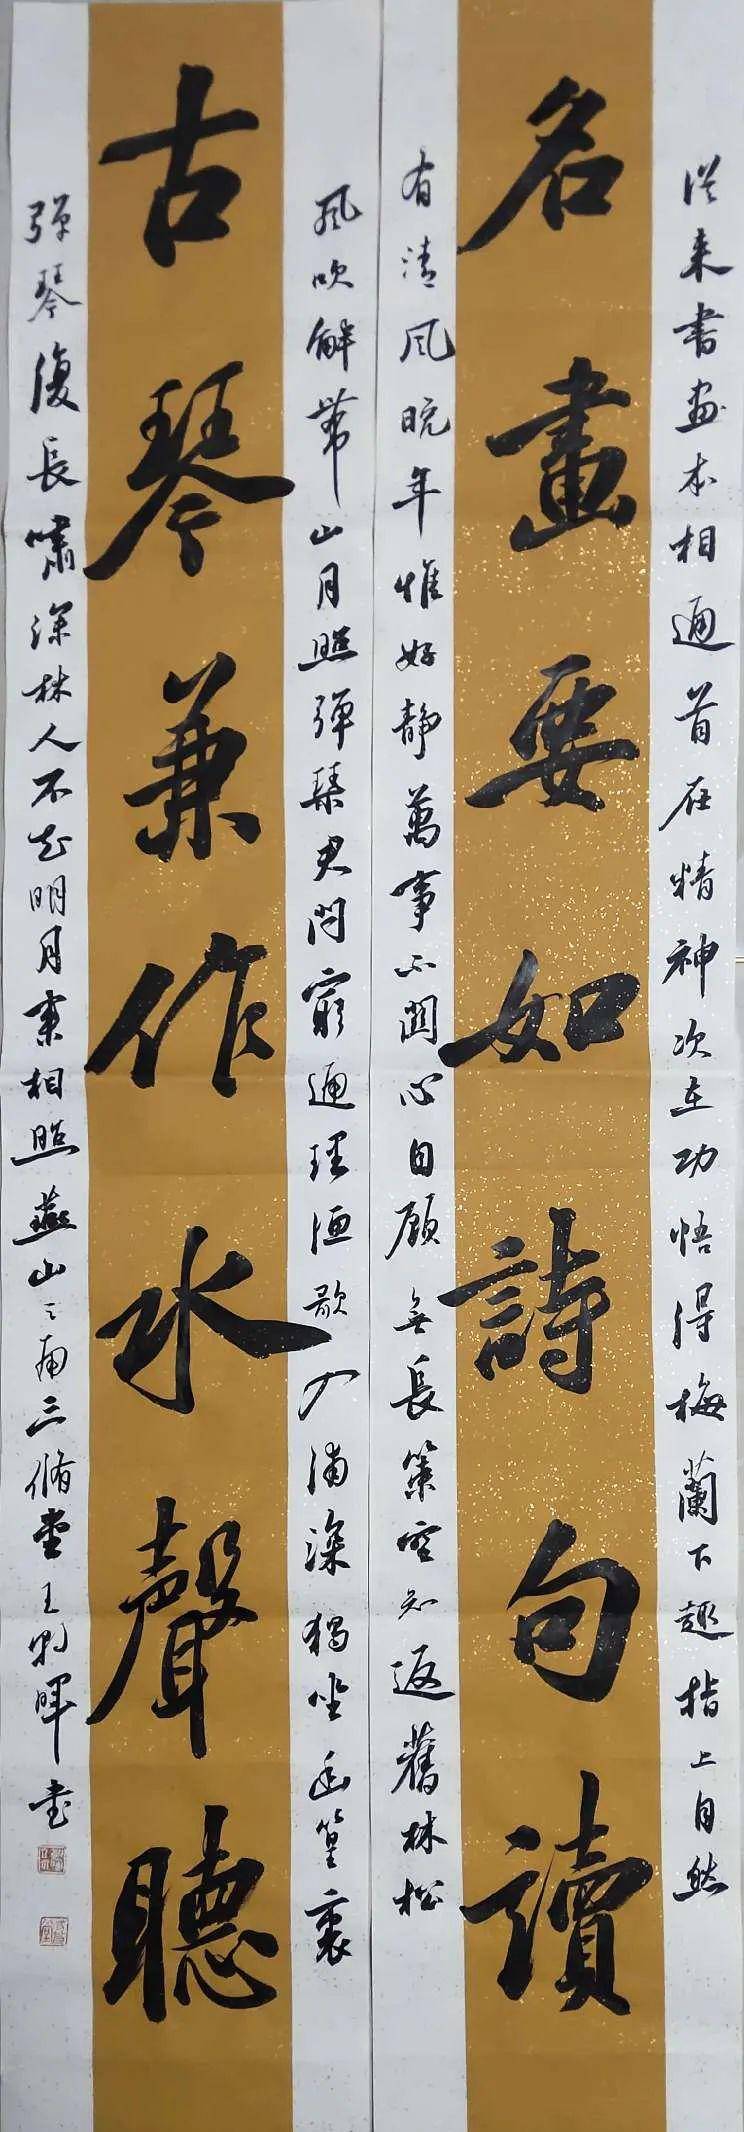 従来書画本相通首在精神次在功悟得梅蘭下趣指上自然
名畫要如詩句讀
有清風晚年惟好静萬事不關心自顧無長策空知返舊林松
風吹解帶山月照弹琴君問窮通理漁歌入浦深獨坐幽篁裏
古琴兼作水聲聽
弹琴復長嘯深林人不知明月来相照燕山之南三脩堂王暉書